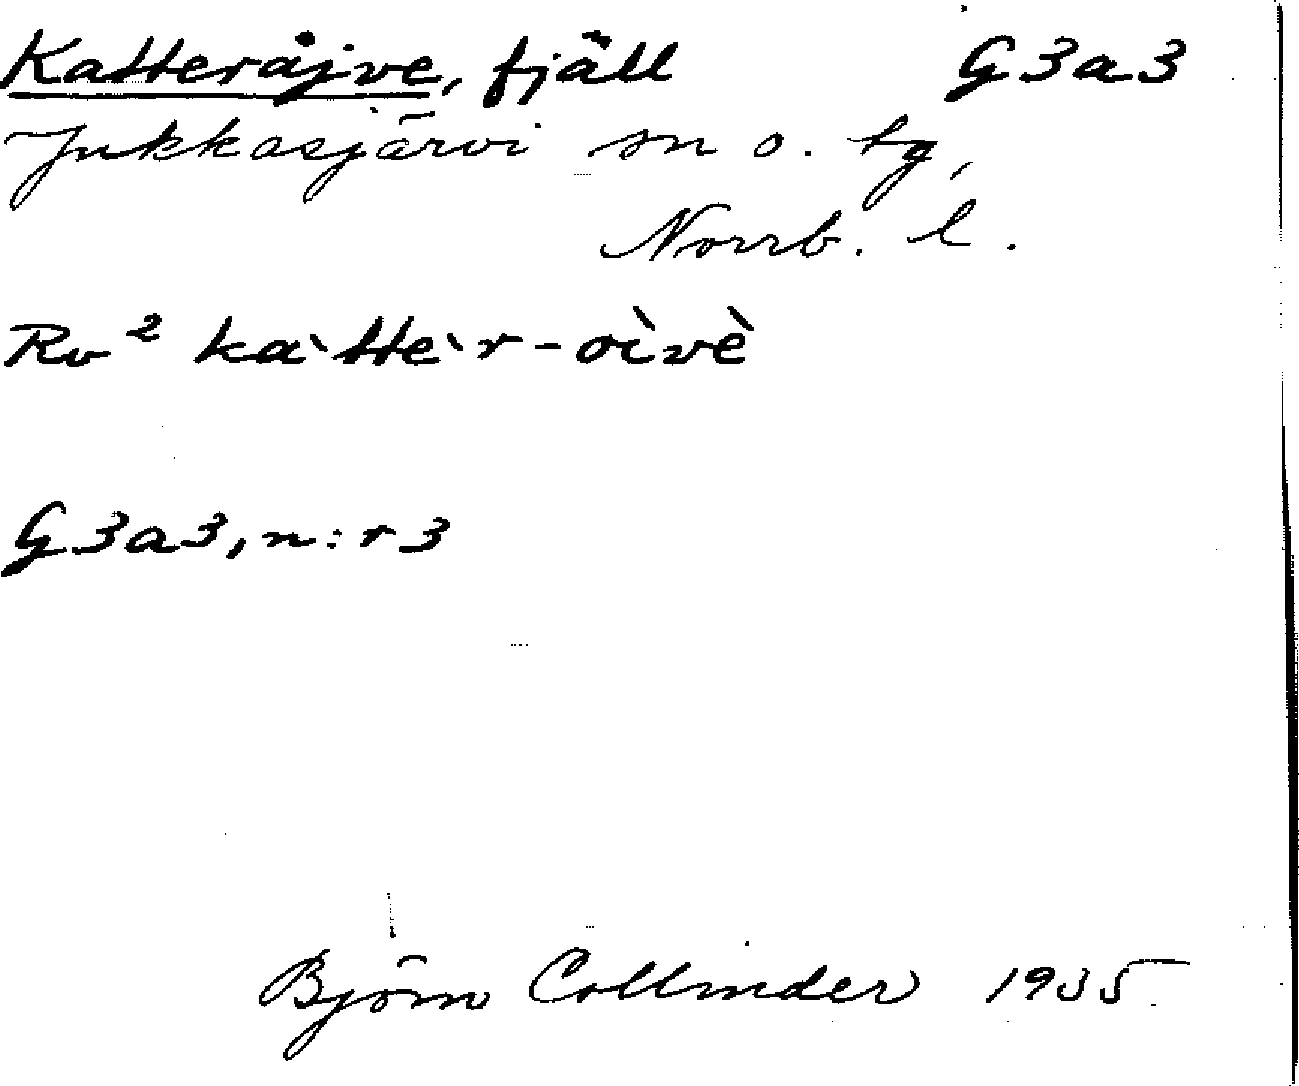 Katteråjve, fjäll G3a3
Jukkasjärvi sn o. tg,
Norrb. l.
Rv² ka`tte`r-oìvè
G3a3, n:r 3
Björn Collinder 1935